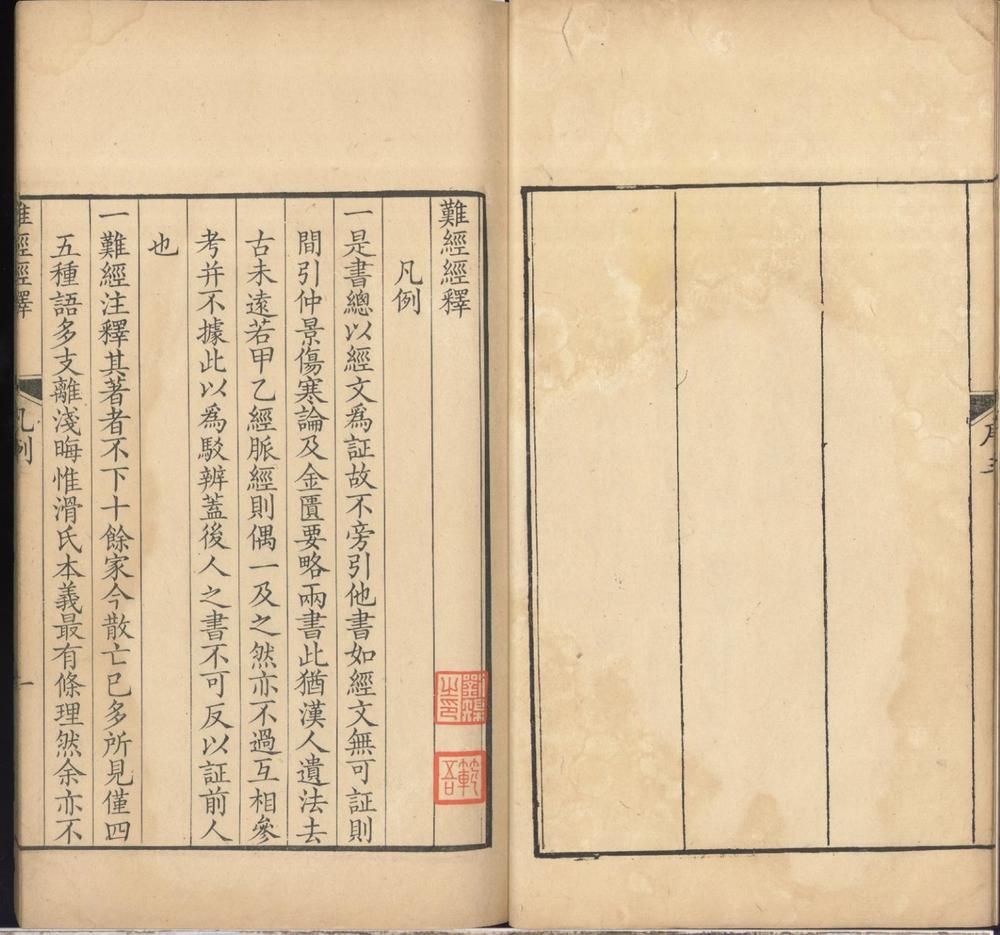 難經經釋
凡例
一是書總以經文爲証故不旁引他書如經文無可証則
間引仲景傷寒論及金匱要略兩書此猶漢人遺法去
古未遠若甲乙經脈經則偶一及之然亦不過互相參
考并不據此以爲駁辨蓋後人之書不可反以証前人
也
一難經注釋其著者不下十餘家今散亡已多所見僅四
五種語多支離淺晦惟滑氏本義最有條理然余亦不
難經經釋
凡例
一